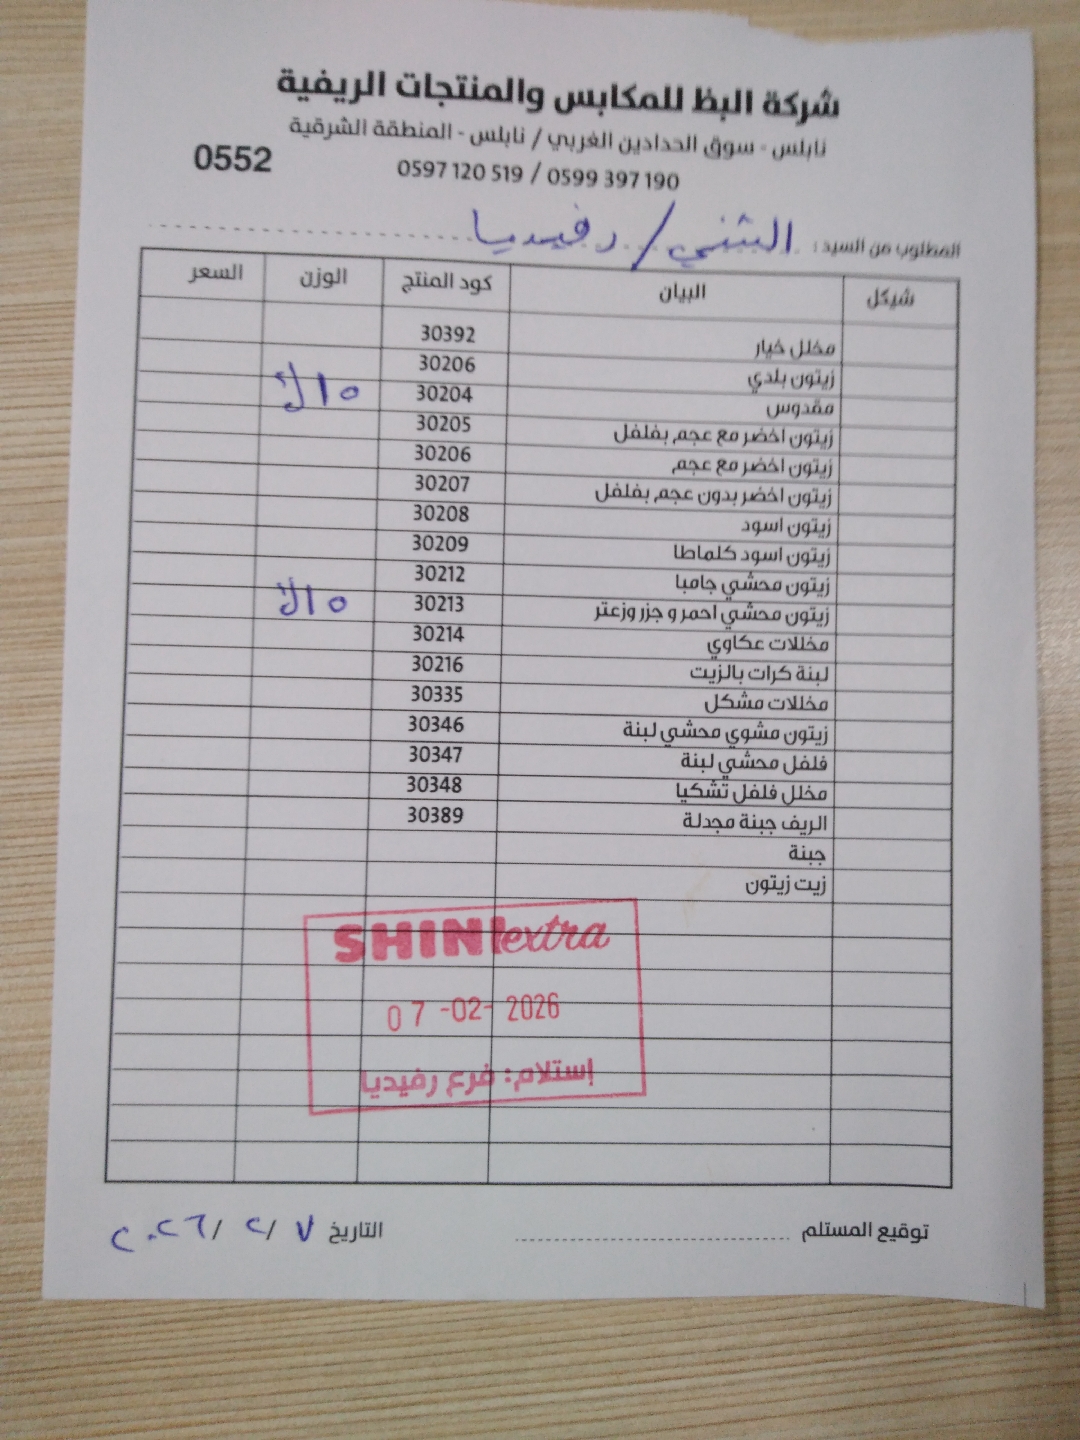 شركة البظ للمكابس والمنتجات الريفية
نابلس - سوق الحدادين الغربي / نابلس - المنطقة الشرقية
0597 120 519 / 0599 397 190
0552
المطلوب من السيد : الشني / رفيديا
شيكل البيان كود المنتج الوزن السعر
مخلل خيار 30392
زيتون بلدي 30206
مقدوس 30204 ١٥ ك
زيتون اخضر مع عجم بفلفل 30205
زيتون اخضر مع عجم 30206
زيتون اخضر بدون عجم بفلفل 30207
زيتون اسود 30208
زيتون اسود كلماطا 30209
زيتون محشي جامبا 30212
زيتون محشي احمر و جزر وزعتر 30213 ١٥ ك
مخللات عكاوي 30214
لبنة كرات بالزيت 30216
مخللات مشكل 30335
زيتون مشوي محشي لبنة 30346
فلفل محشي لبنة 30347
مخلل فلفل تشكيا 30348
الريف جبنة مجدلة 30389
جبنة
زيت زيتون
SHINI extra
07 -02- 2026
إستلام: فرع رفيديا
توقيع المستلم
التاريخ ٧ / ٢ / ٢٠٢٦